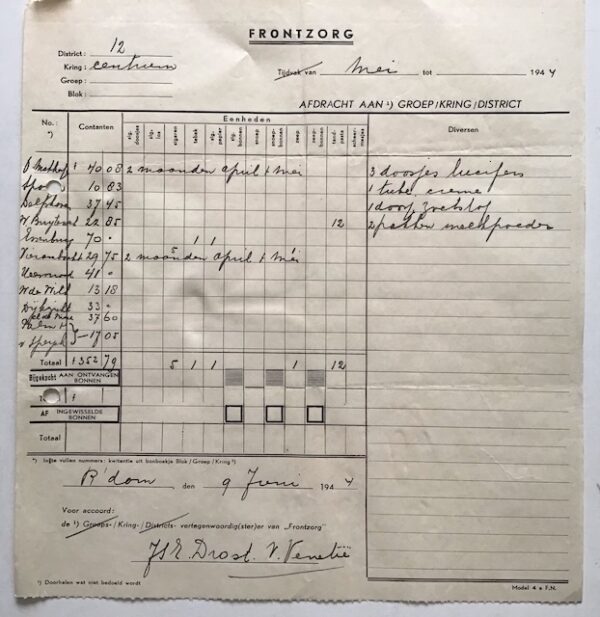 FRONTZORG
District: 12
Kring: centrum
Groep:
Blok:
Tijdvak van Mei tot 1944
AFDRACHT AAN ¹) GROEP/KRING/DISTRICT
No.: *) Contanten Eenheden Diversen
sig. doosjes sig. los sigaren tabak sig. papier sig. bonnen snoep snoep-bonnen zeep zeep-bonnen tand-pasta scheer-mesjes
40 08 2 maanden april + mei 3 doosjes lucifers
10 83 1 tube creme
37 45 1 doos
22 85 12 2 pakken melkpoeder
70 1 1
29 75 5 2 maanden april + mei
41
W de Wild 13 18
33
37 60
17 05
Totaal f 352 79 5 1 1 1 12
Bijgekocht AAN ONTVANGEN BONNEN
f
AF INGEWISSELDE BONNEN
Totaal
*) Invullen nummers: kwitantie uit bonboekje Blok/Groep/Kring ¹)
R'dam den 9 Juni 1944
Voor accoord:
de ¹) Groeps-/Kring-/Districts- vertegenwoordig(st)er van „Frontzorg”
Drost V. Venetië
¹) Doorhalen wat niet bedoeld wordt
Model 4 a F.N.